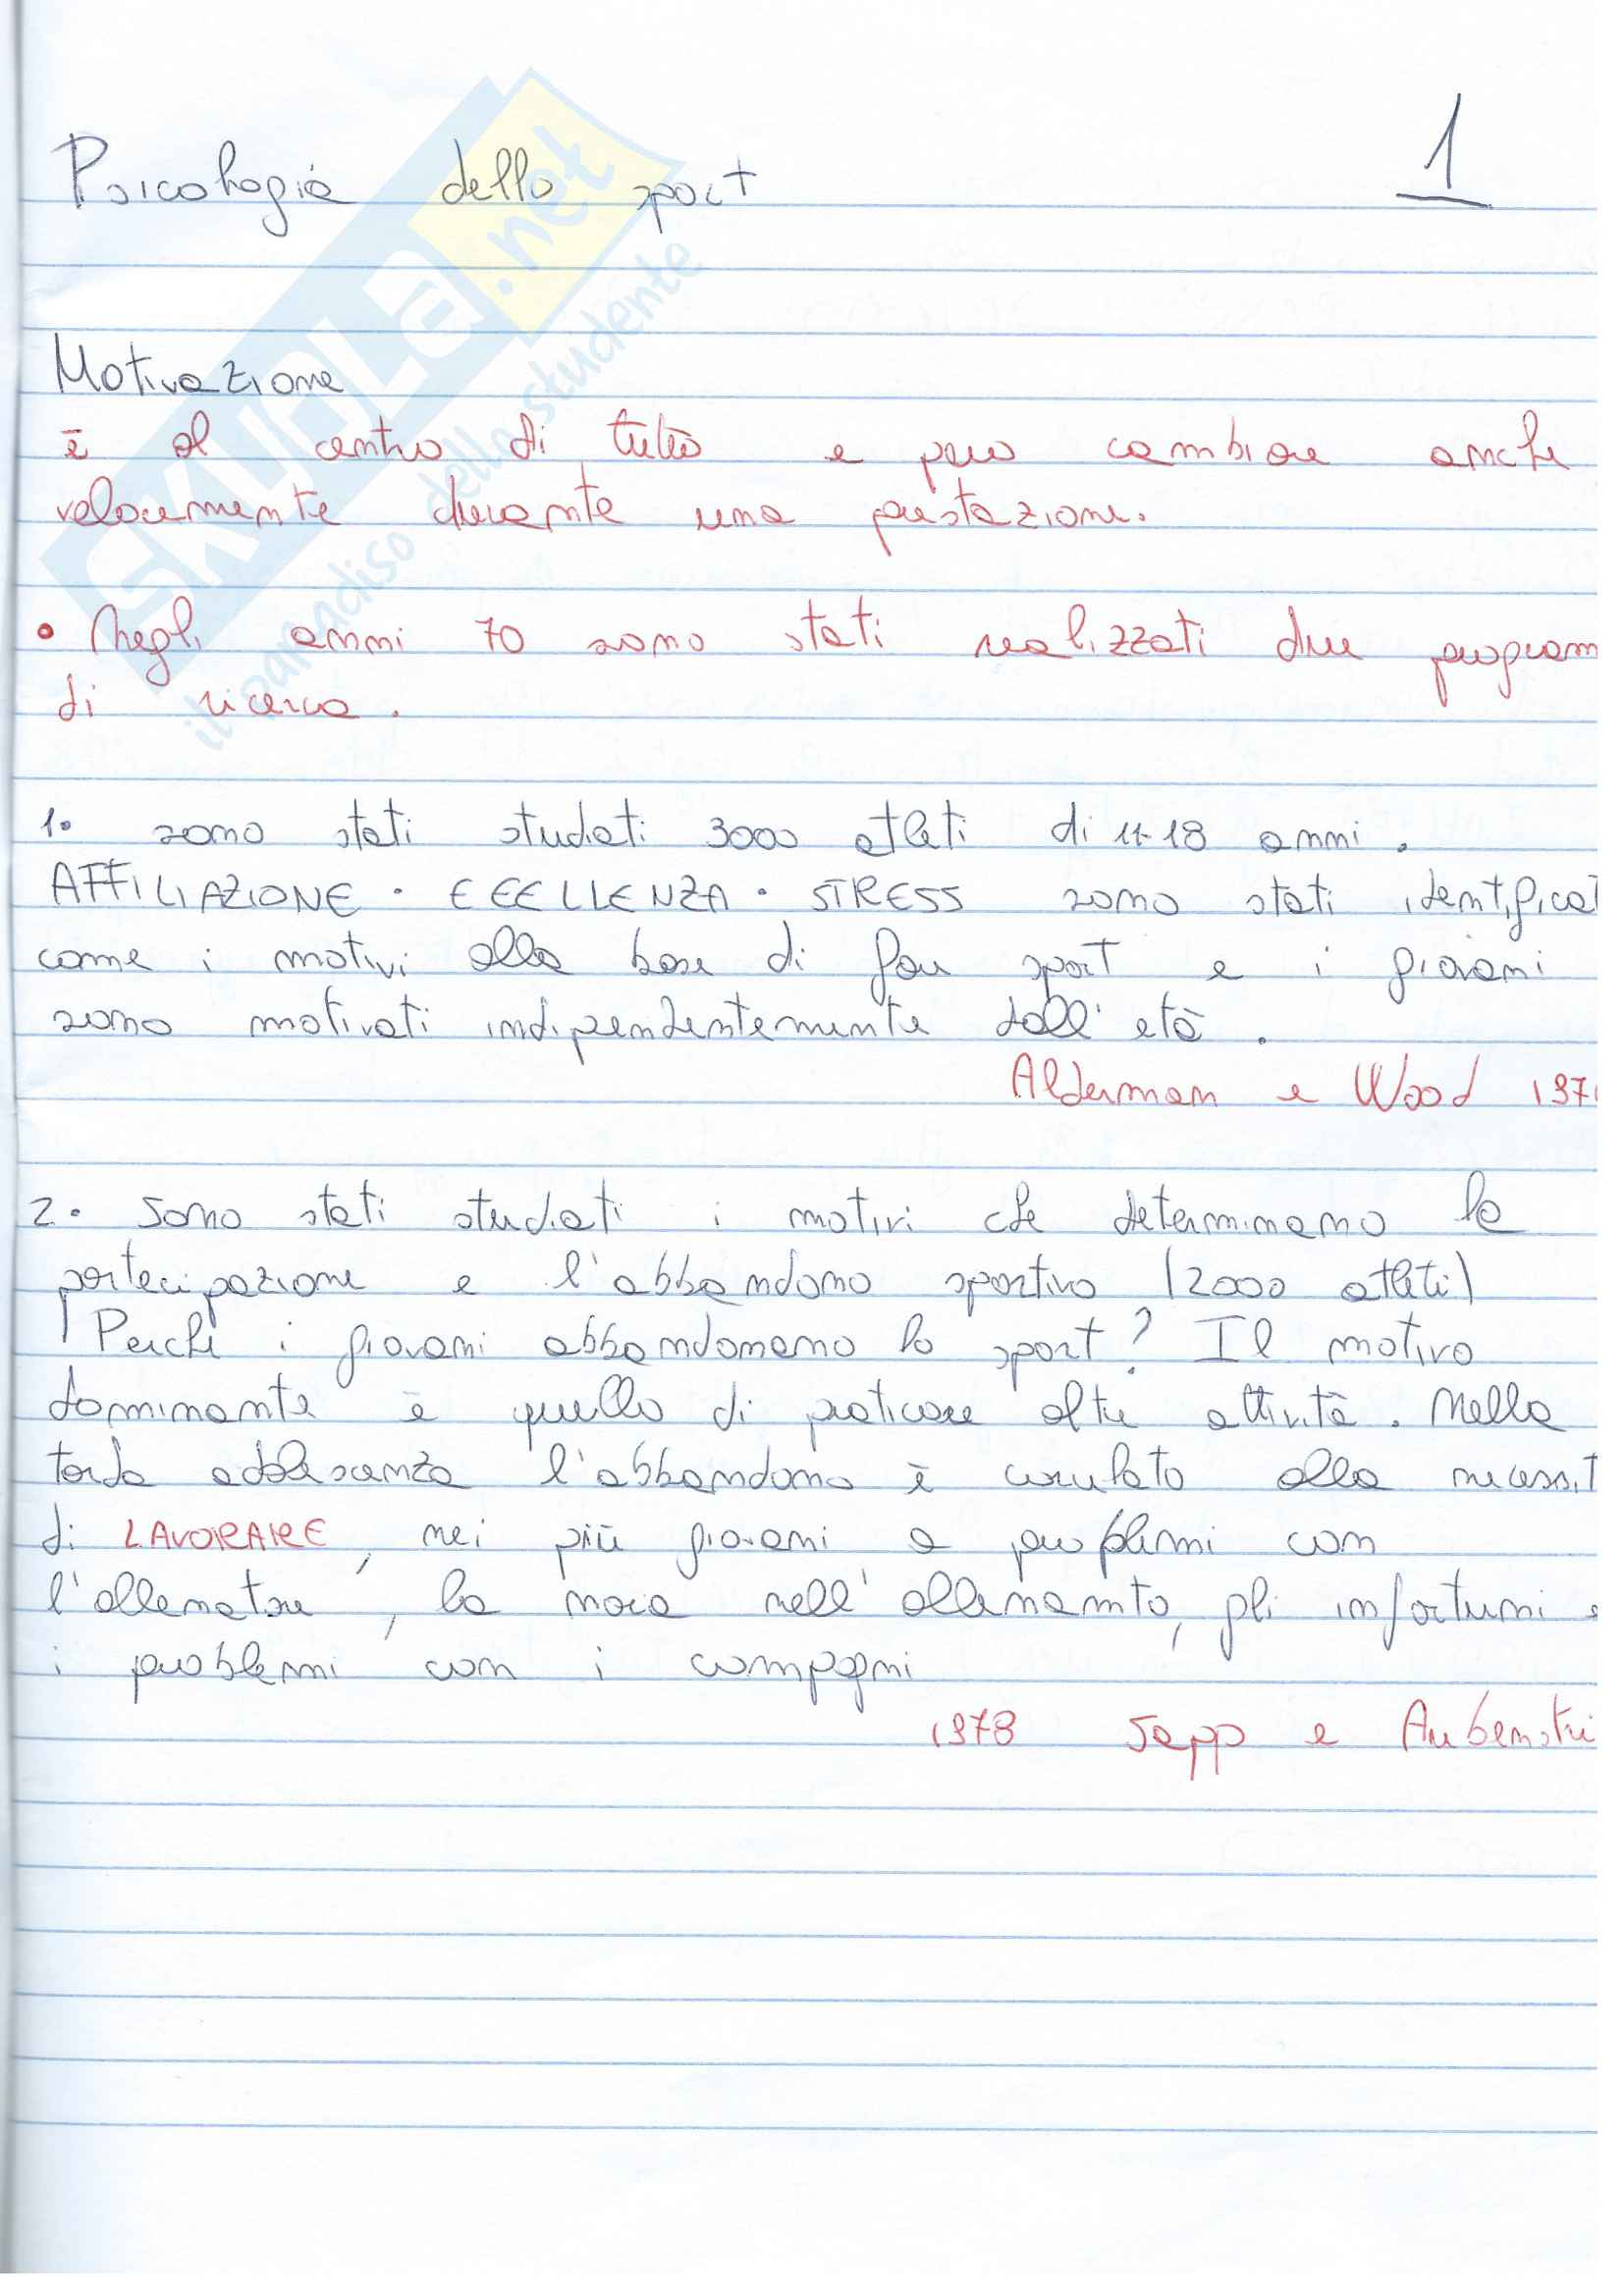 Psicologia dello sport 1
Motivazione
è al centro di tutto e può cambiare anche
velocemente durante una prestazione.
• Negli anni 70 sono stati realizzati due program
di ricerca.
1. sono stati studiati 3000 atleti di 11-18 anni.
AFFILIAZIONE · ECCELLENZA · STRESS sono stati identificat
come i motivi alla base di fare sport e i giovani
sono motivati indipendentemente dall'età.
Alderman e Wood 197
2. Sono stati studiati i motivi che determinano la
partecipazione e l'abbandono sportivo (2000 atleti)
! Perché i giovani abbandonano lo sport? Il motivo
dominante è quello di praticare altre attività. Nella
tarda adolescenza l'abbandono è correlato alla necessit
di LAVORARE, nei più giovani a problemi con
l'allenatore, la noia nell'allenamento, gli infortuni e
i problemi con i compagni
1978 Sapp e
SKUOLA.net
il paradiso dello studente